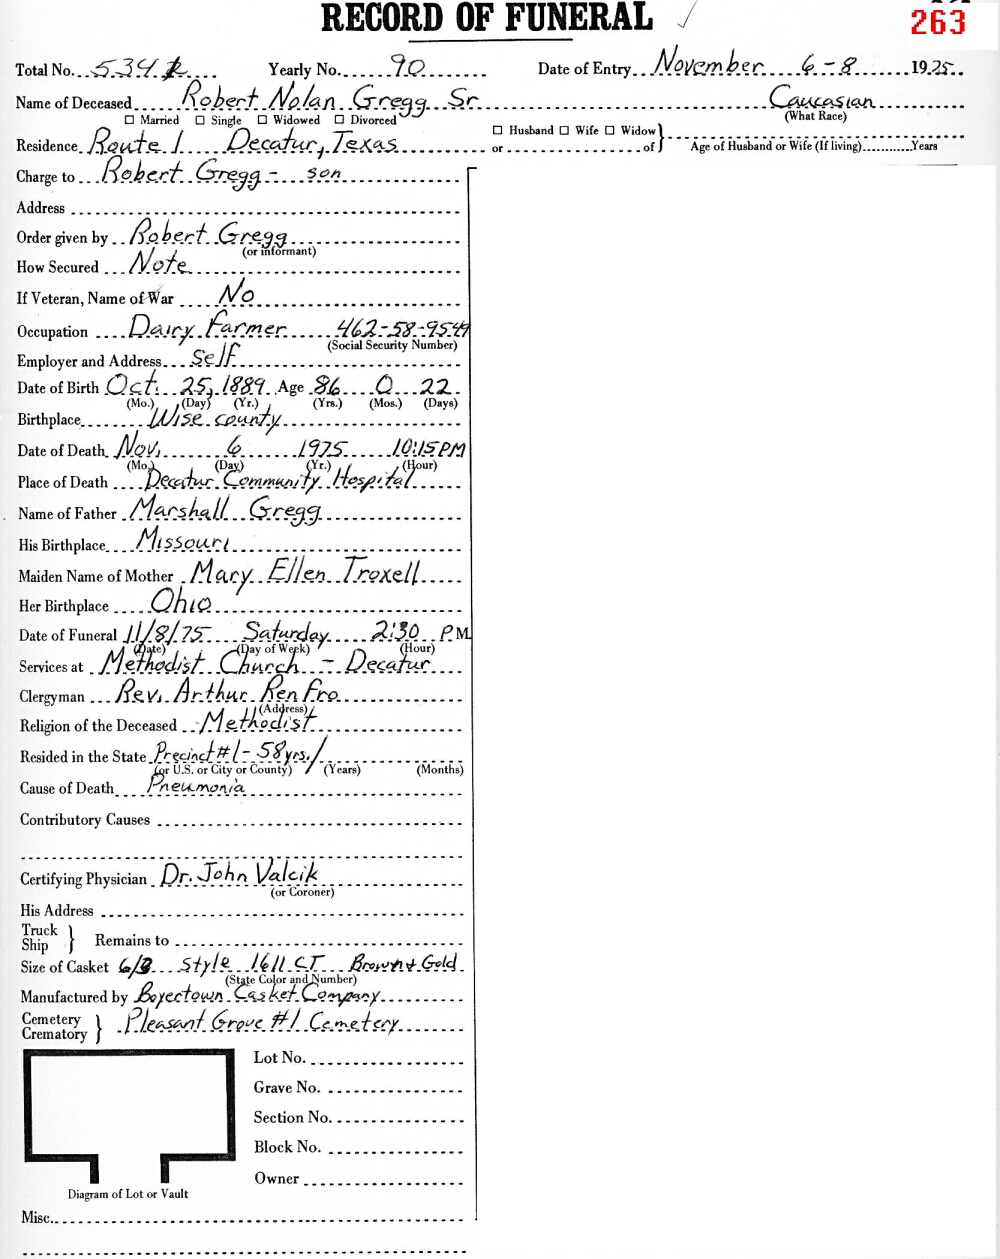 RECORD OF FUNERAL
263
Total No. 534 Yearly No. 90 Date of Entry November 6-8 1975
Name of Deceased Robert Nolan Gregg Sr. Caucasian
(What Race)
☐ Married ☐ Single ☐ Widowed ☐ Divorced
☐ Husband ☐ Wife ☐ Widow
Residence Route 1 Decatur, Texas or of Age of Husband or Wife (If living) Years
Charge to Robert Gregg - son
Address
Order given by Robert Gregg
(or informant)
How Secured Note
If Veteran, Name of War No
Occupation Dairy Farmer 462-58-9549
(Social Security Number)
Employer and Address Self
Date of Birth Oct. 25, 1889 Age 86 0 22
(Mo.) (Day) (Yr.) (Yrs.) (Mos.) (Days)
Birthplace Wise county
Date of Death Nov. 6 1975 10:15 PM
(Mo.) (Day) (Yr.) (Hour)
Place of Death Decatur Community Hospital
Name of Father Marshall Gregg
His Birthplace Missouri
Maiden Name of Mother Mary Ellen Troxell
Her Birthplace Ohio
Date of Funeral 11/8/75 Saturday 2:30 P.M.
(Date) (Day of Week) (Hour)
Services at Methodist Church - Decatur
Clergyman Rev. Arthur Renfro
(Address)
Religion of the Deceased Methodist
Resided in the State Precinct #1 - 58 yrs./
(or U.S. or City or County) (Years) (Months)
Cause of Death Pneumonia
Contributory Causes
Certifying Physician Dr. John Valcik
(or Coroner)
His Address
Truck
Ship } Remains to
Size of Casket 6/3 Style 1611 CT Brown & Gold
(State Color and Number)
Manufactured by Boyertown Casket Company
Cemetery
Crematory } Pleasant Grove #1 Cemetery
Lot No.
Grave No.
Section No.
Block No.
Owner
Diagram of Lot or Vault
Misc.